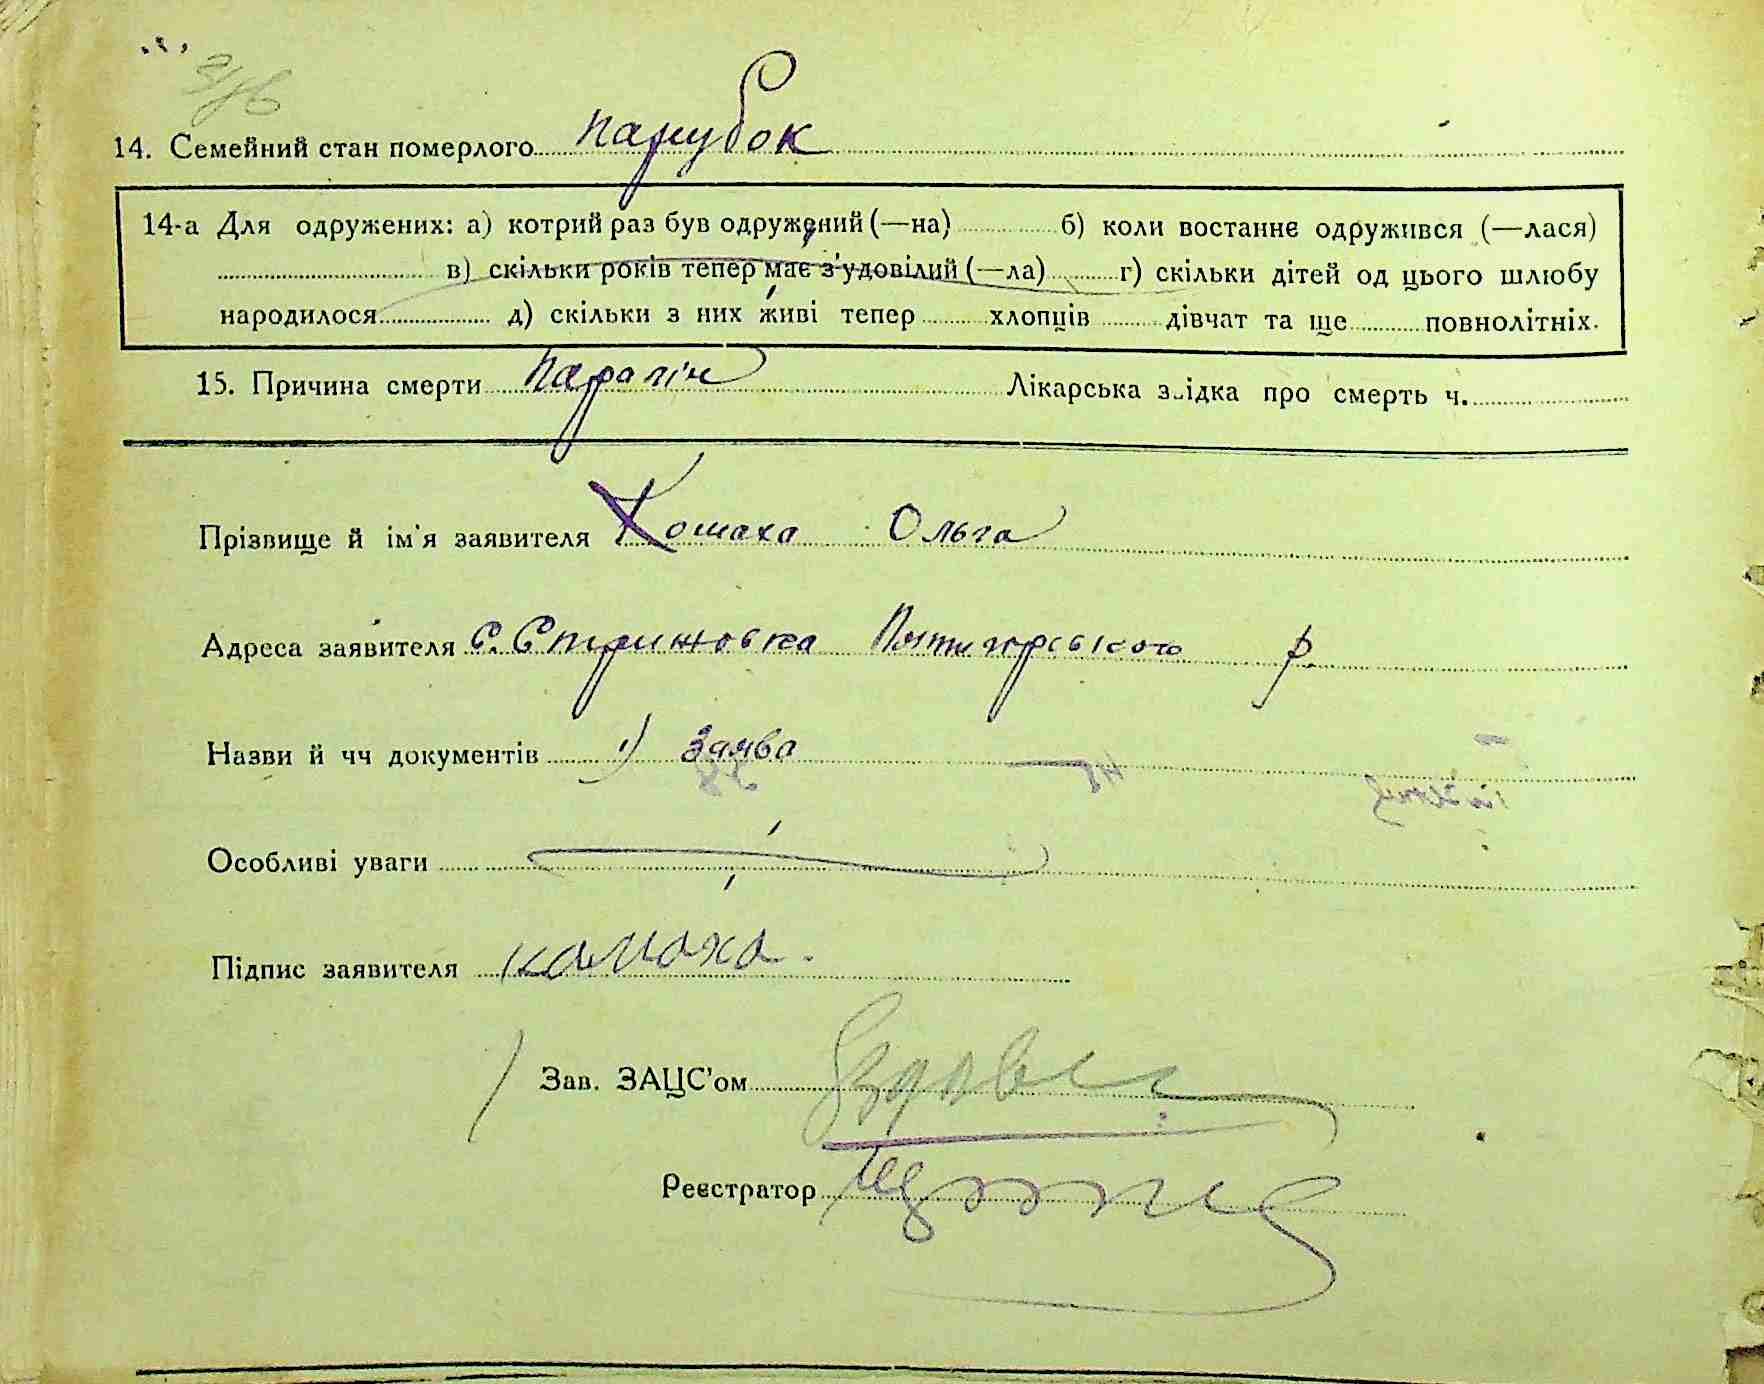 14. Семейний стан померлого парубок
14-а Для одружених: а) котрий раз був одружений (—на) б) коли востаннє одружився (—лася)
в) скільки років тепер має з'удовілий (—ла) г) скільки дітей од цього шлюбу
народилося д) скільки з них живі тепер хлопців дівчат та ще повнолітніх.
15. Причина смерти Лікарська звідка про смерть ч.
Прізвище й ім'я заявителя Ольга
Адреса заявителя с. Стрижовка Пятигорського р.
Назви й чч документів 1) Заява
Особливі уваги
Підпис заявителя
Зав. ЗАЦС'ом
Реєстратор